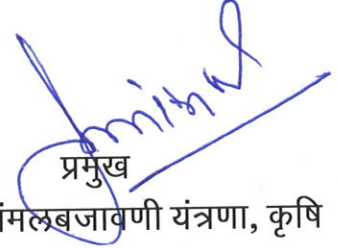 प्रमुख
अंमलबजावणी यंत्रणा, कृषि